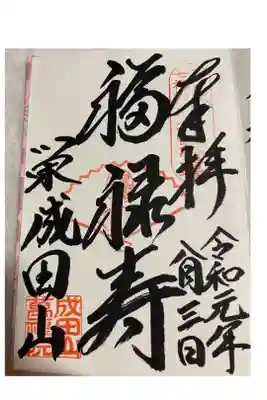 奉拝
令和元年
八月三日
福禄寿
栄成田山